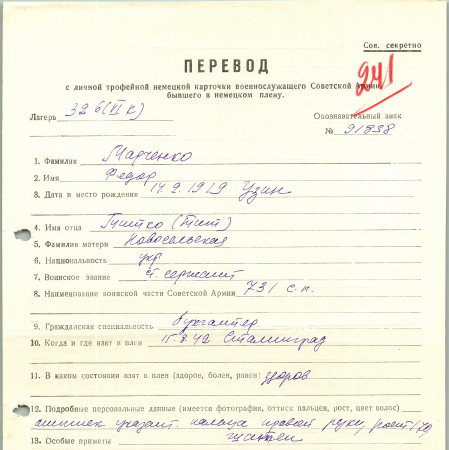 Сов. секретно
241
ПЕРЕВОД
с личной трофейной немецкой карточки военнослужащего Советской Армии,
бывшего в немецком плену.
Лагерь 326 (VI K)
Опознавательный знак
№ 91538
1. Фамилия Марченко
2. Имя Федор
3. Дата и место рождения 17.2.1919 Узин
4. Имя отца (Тит)
5. Фамилия матери Новосельская
6. Национальность укр
7. Воинское звание ст. сержант
8. Наименование воинской части Советской Армии 731 с.п.
9. Гражданская специальность бухгалтер
10. Когда и где взят в плен 15.8.42 Сталинград
11. В каком состоянии взят в плен (здоров, болен, ранен) здоров
12. Подробные персональные данные (имеется фотография, оттиск пальцев, рост, цвет волос)
оттиск указат. пальца правой руки, рост 170
13. Особые приметы